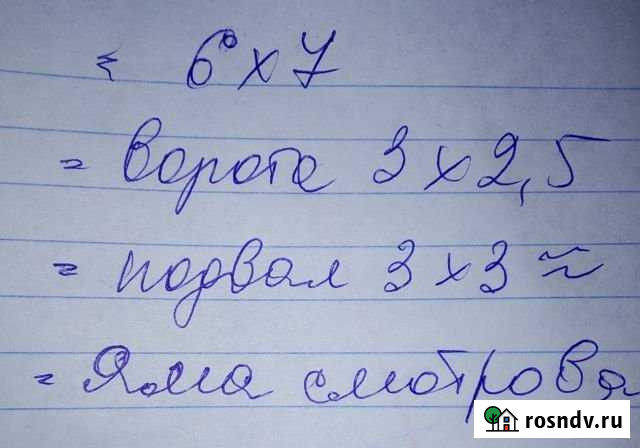 6 x 7
= ворота 3 x 2,5
= подвал 3 x 3 ≈
= Яма смотровая
rosndv.ru